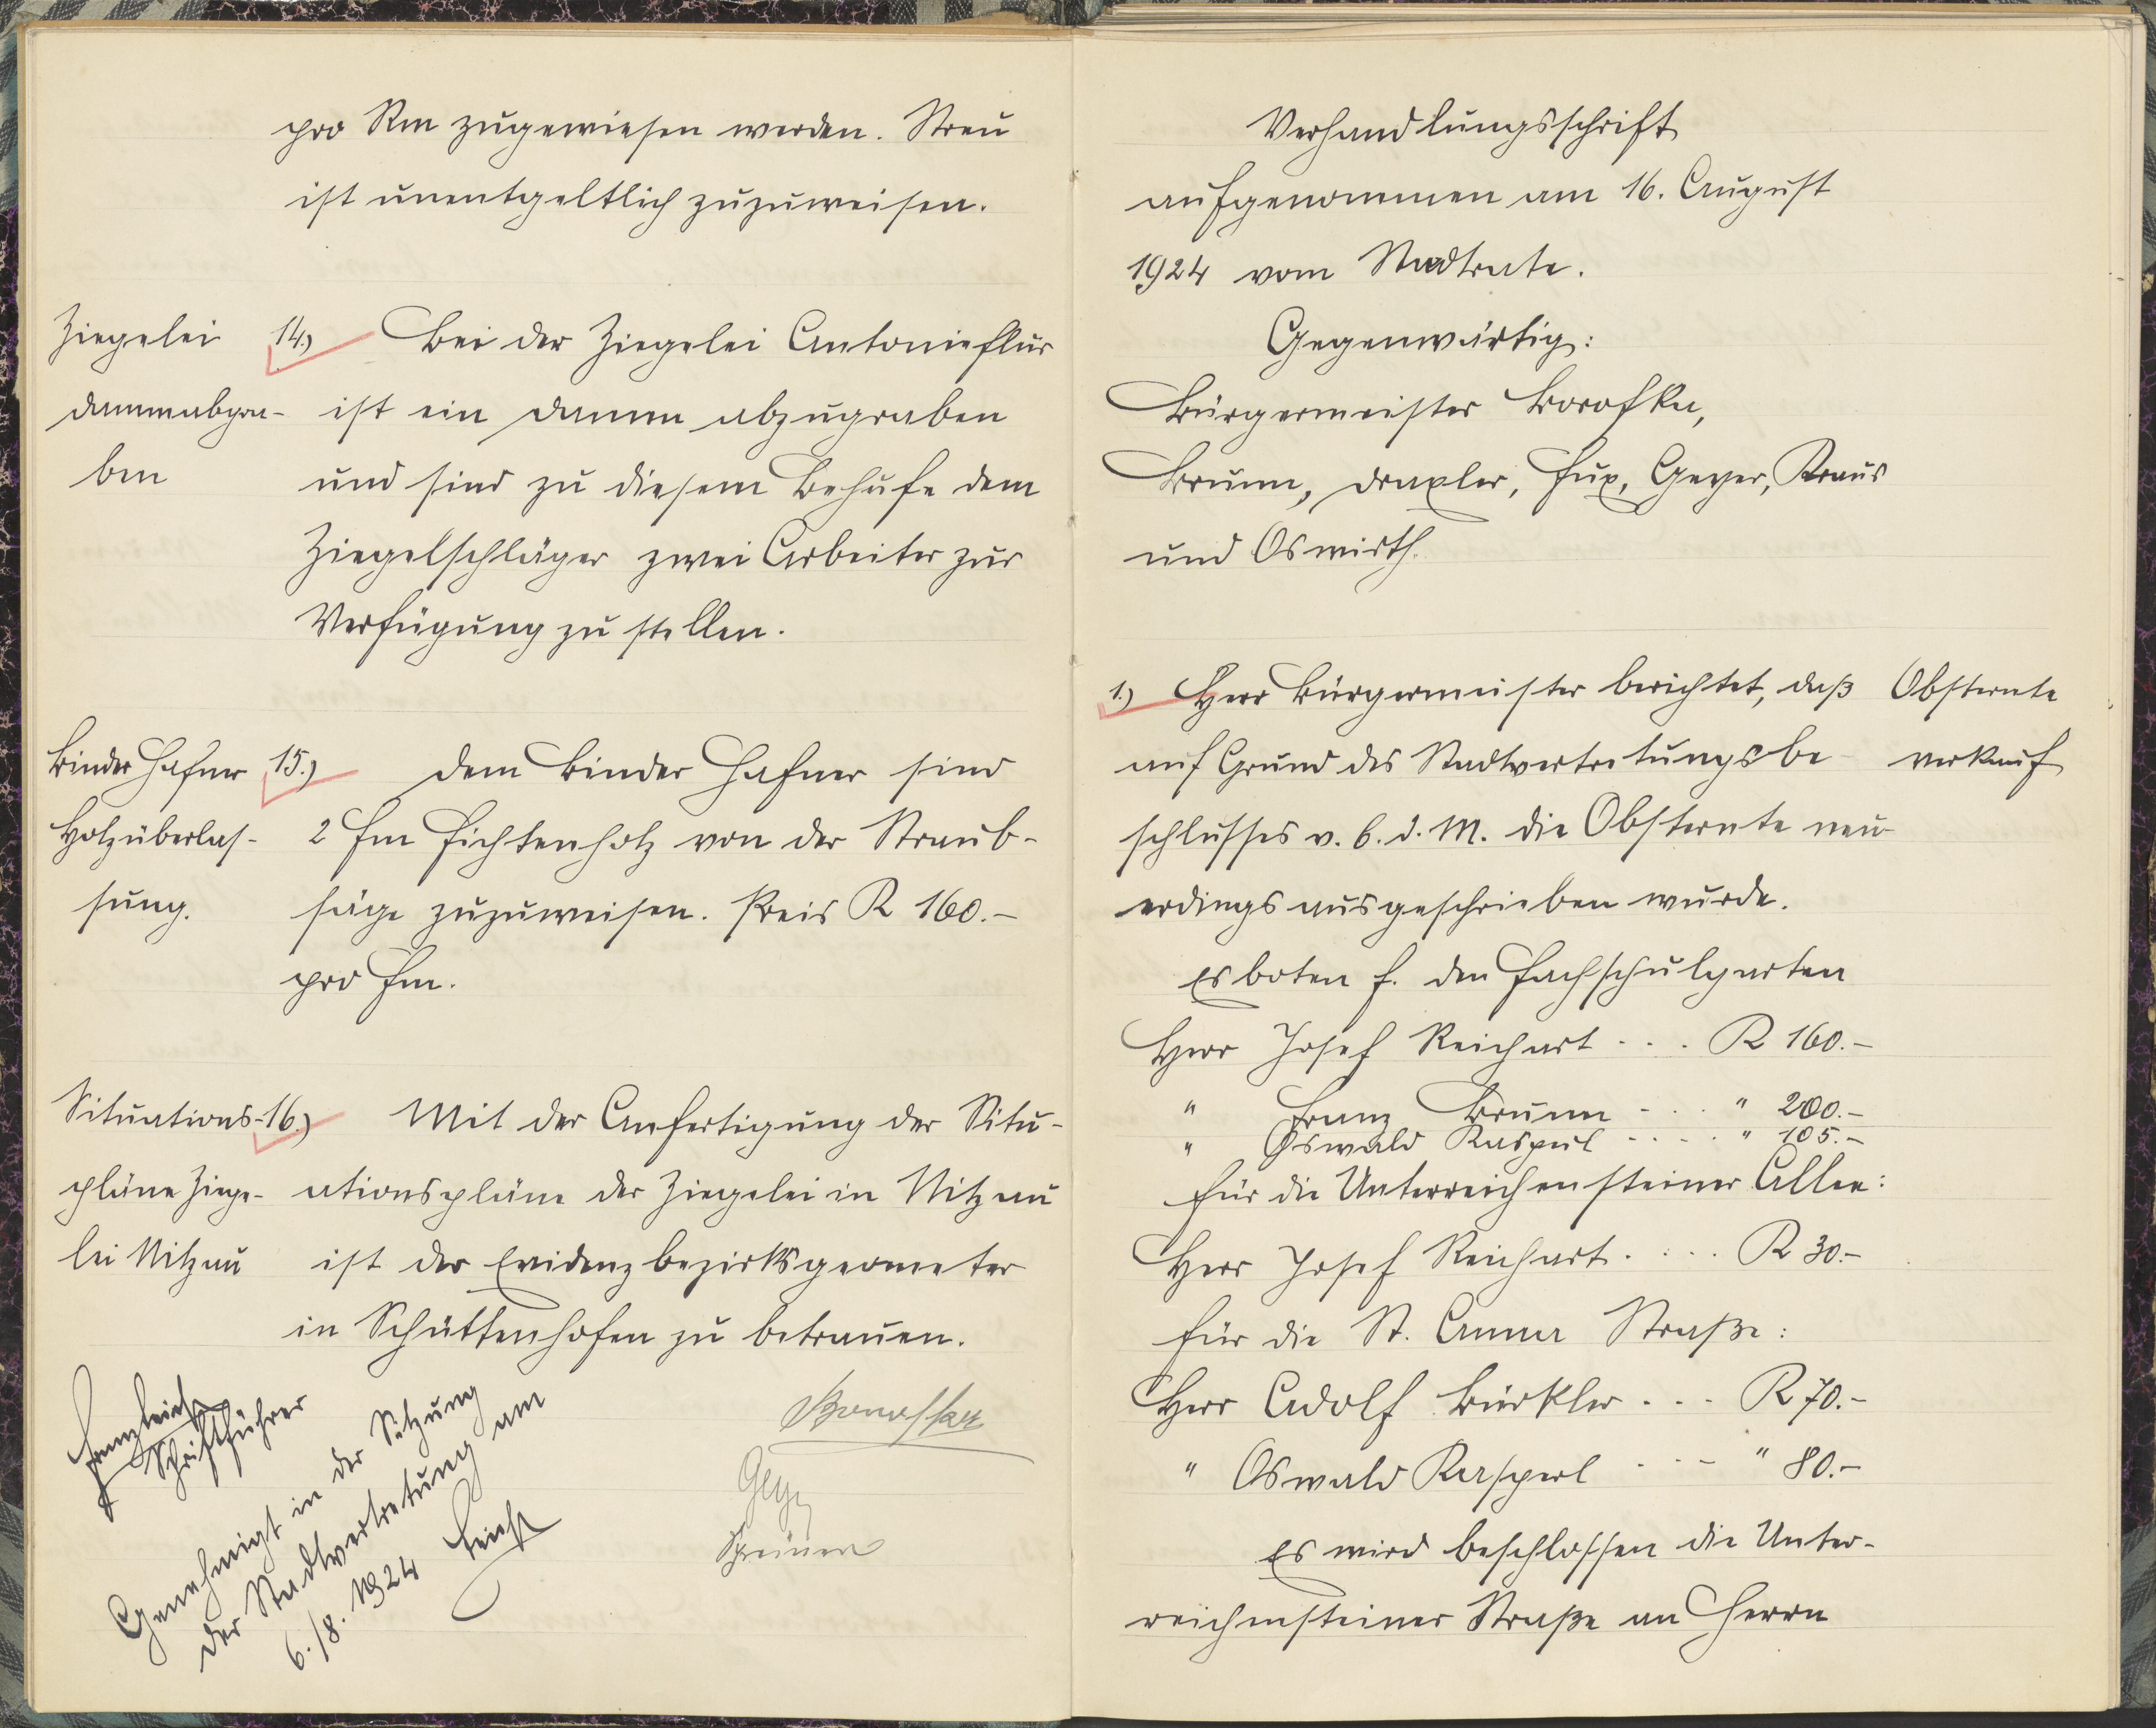 pro Rm zugewiesen werden. Streu
ist unentgeltlich zuzuweisen.
Ziegelei
dammabgra-
ben
14.) Bei der Ziegelei Antonieflur
ist ein Damm abzugraben
und sind zu diesem Behufe dem
Ziegelschläger zwei Arbeiter zur
Verfügung zu stellen.
Binder Hafner
Holzüberlas-
sung.
15.) Dem Binder Hafner sind
2 fm Fichtenholz von der Straub-
säge zuzuweisen. Preis K 160.-
pro fm.
Situations-
pläne Ziege-
lei Nitzau
16.) Mit der Anfertigung der Situ-
ationspläne der Ziegelei in Nitzau
ist der Evidenzbezirksgeometer
in Schüttenhofen zu betrauen.
Schriftführer
Genehmigt in der Sitzung
der Stadtvertretung am
6./8. 1924
Borofka
Geyer
Verhandlungsschrift
aufgenommen am 16. August
1924 vom Stadtrate.
Gegenwärtig:
Bürgermeister Borofka,
Brunn, Draxler, Fux, Geyer, Kraus
und Oswirth.
1.) Herr Bürgermeister berichtet, daß
auf Grund des Stadtvertretungsbe-
schlusses v. 6. d. M. die Obsternte neu-
erdings ausgeschrieben wurde.
Obsternte
verkauf
Es boten f. den Fachschulgarten
Herr Josef Reichart . . . K 160.-
" Franz Brunn - . . " 200.-
" Oswald Kasperl - . - . " 105.-
Für die Unterreichensteiner Allee:
Herr Josef Reichart . . . . K 30.-
Für die St. Anna Straße:
Herr Adolf Bürkler . . . K 70.-
" Oswald Kasperl . . - " 80.-
Es wird beschlossen die Unter-
reichensteiner Straße an Herrn